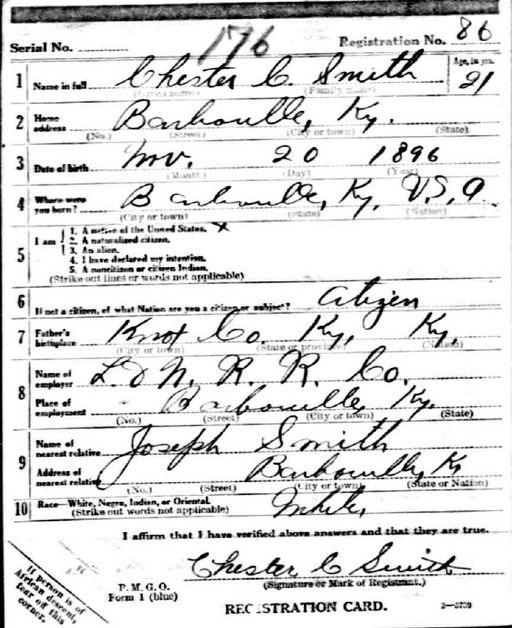 Serial No. 176 Registration No. 86
1 Name in full Chester C. Smith Age, in yrs. 21
(Given name) (Family name)
2 Home address Barbouille, Ky.
(No.) (Street) (City or town) (State)
3 Date of birth Nov. 20 1896
(Month) (Day) (Year)
4 Where were you born? Barbouille, Ky, U.S.A.
(City or town) (State) (Nation)
5 I am
1. A native of the United States. x
2. A naturalized citizen.
3. An alien.
4. I have declared my intention.
5. A noncitizen or citizen Indian.
(Strike out lines or words not applicable)
6 If not a citizen, of what Nation are you a citizen or subject? Citizen
7 Father's birthplace Knox Co. Ky, Ky,
(City or town) (State or province) (Nation)
8 Name of employer L. & N. R. R. Co.
Place of employment Barbouille, Ky.
(No.) (Street) (City or town) (State)
9 Name of nearest relative Joseph Smith
Address of nearest relative Barbouille, Ky
(No.) (Street) (City or town) (State or Nation)
10 Race—White, Negro, Indian, or Oriental. White,
(Strike out words not applicable)
I affirm that I have verified above answers and that they are true.
Chester C Smith
(Signature or Mark of Registrant.)
P. M. G. O.
Form 1 (blue)
REGISTRATION CARD.
3—5739
If person is of
African descent,
tear on this
corner.